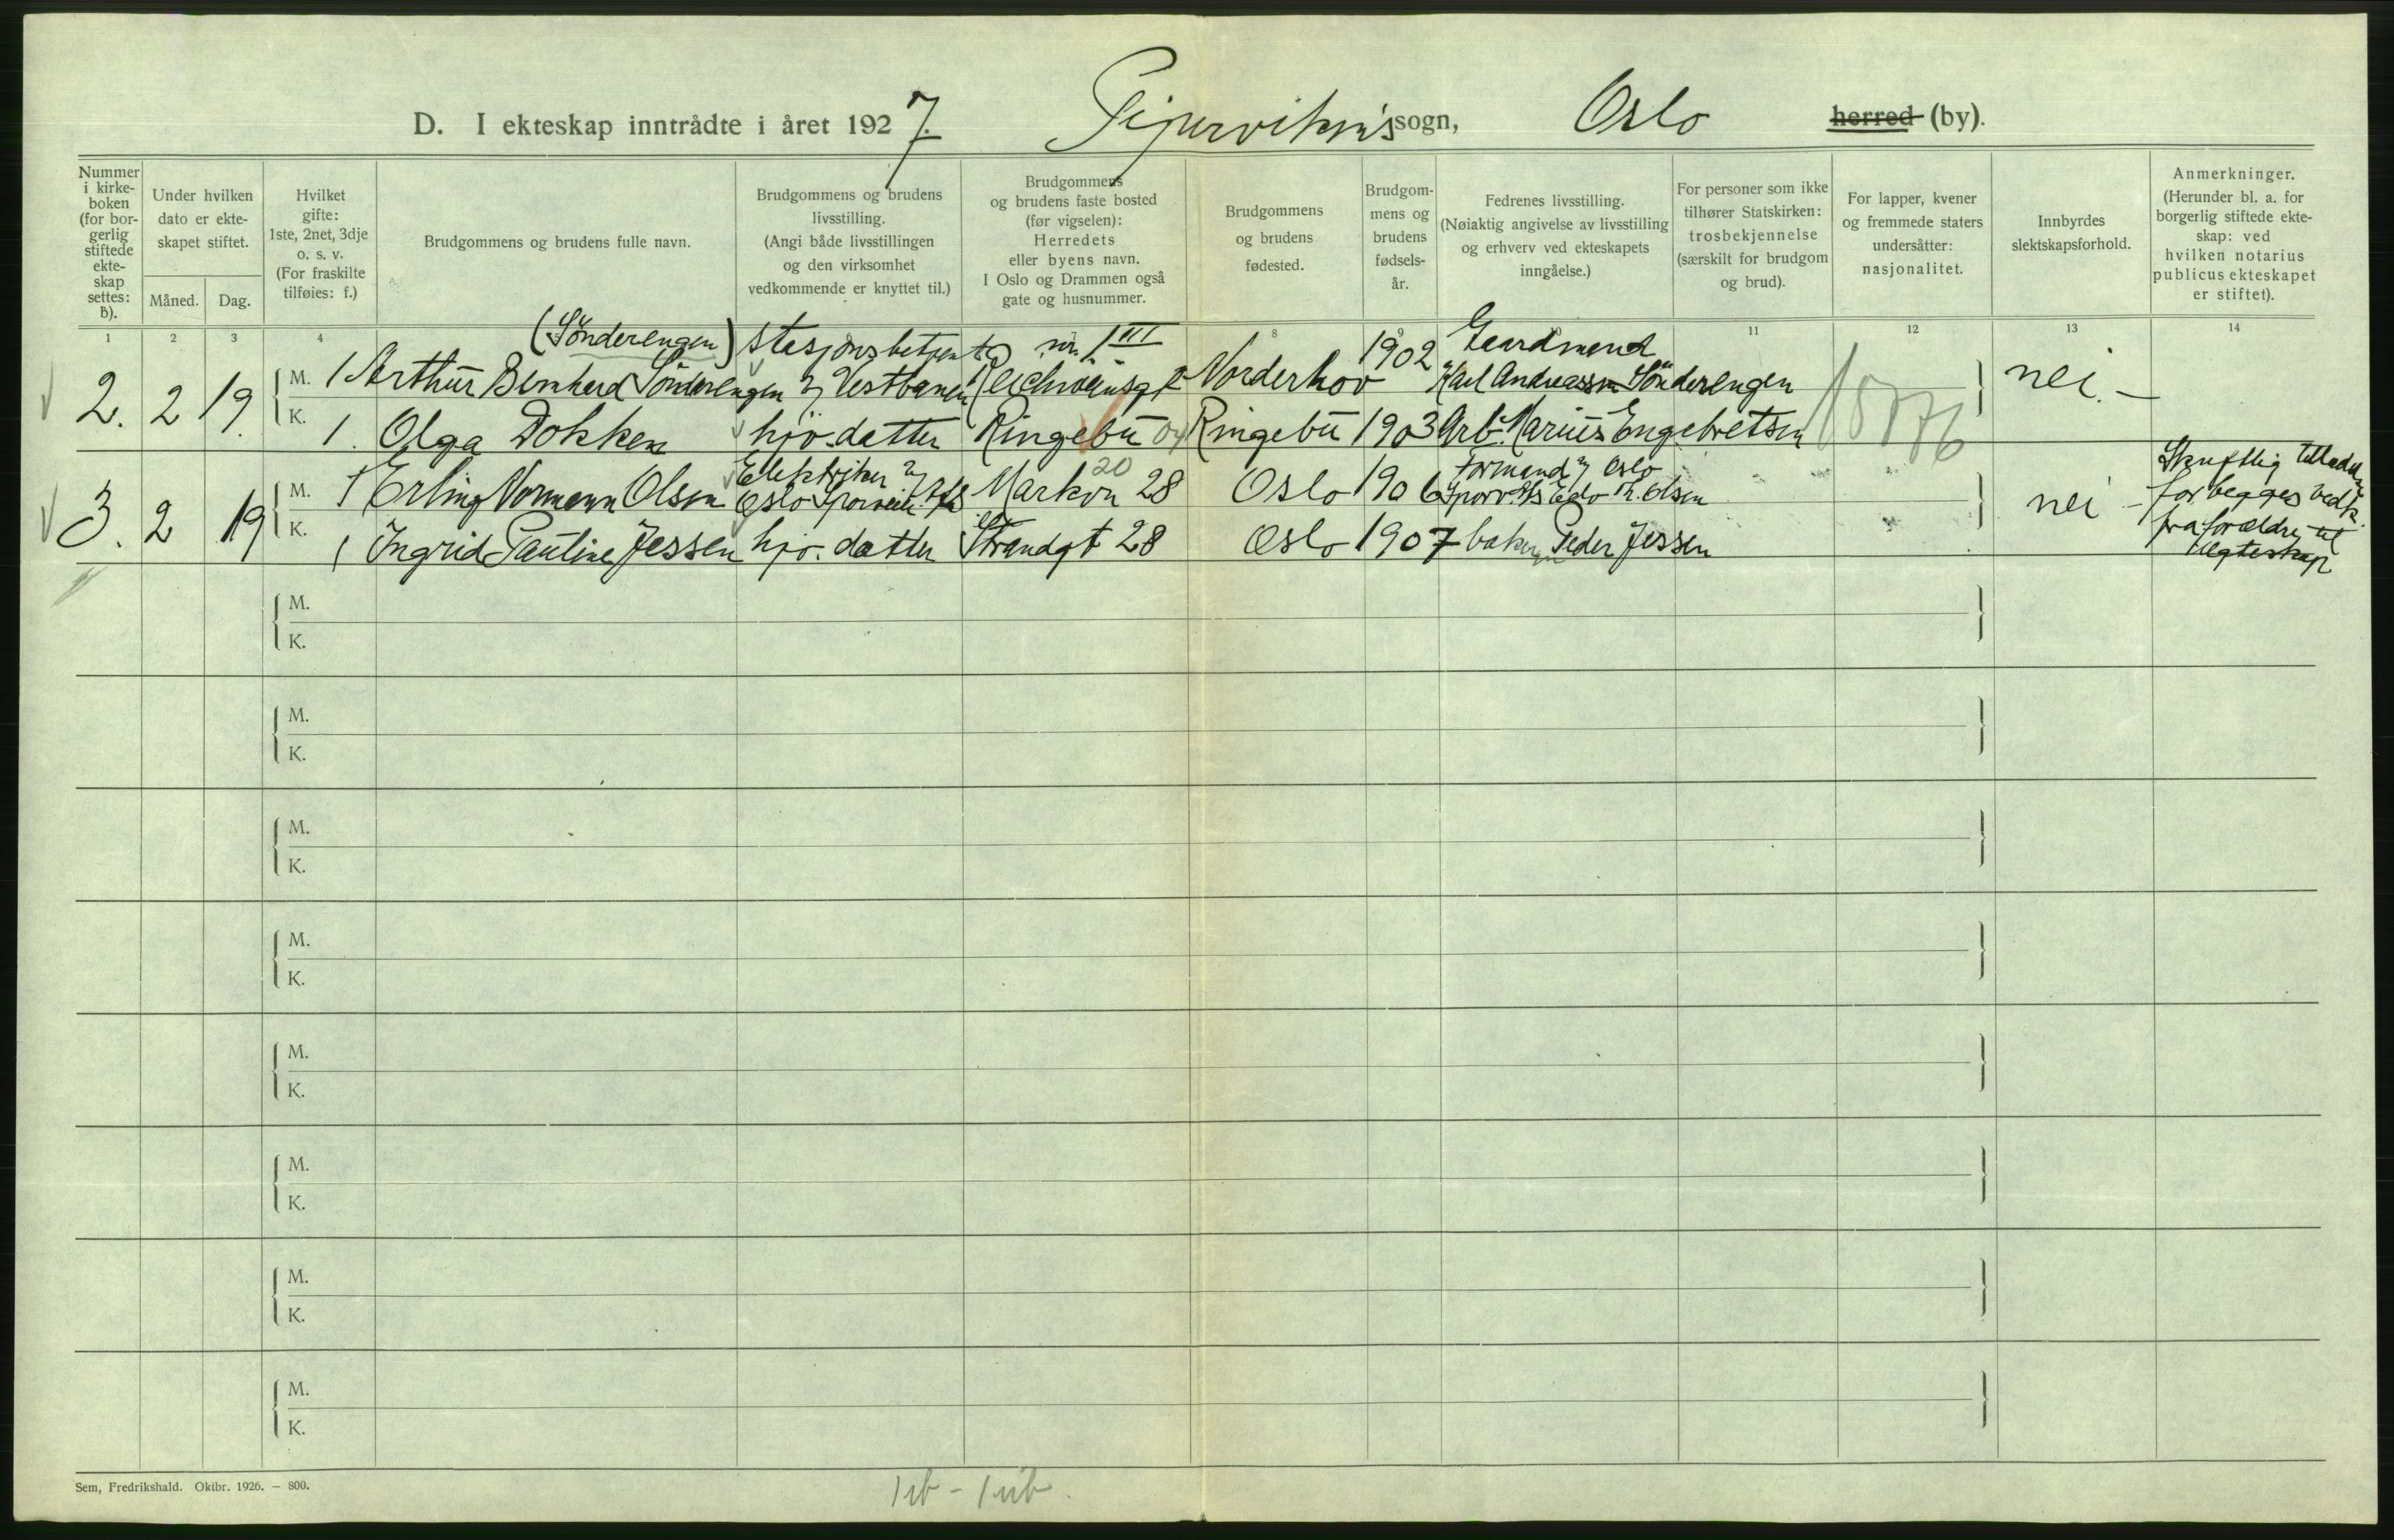 D. I ekteskap inntrådte i året 1927. Pipervikens sogn, Oslo herred (by).
Nummer i kirkeboken (for borgerlig stiftede ekteskap settes: b).
Under hvilken dato er ekteskapet stiftet.
Måned. Dag.
Hvilket gifte: 1ste, 2net, 3dje o. s. v. (For fraskilte tilføies: f.)
Brudgommens og brudens fulle navn.
Brudgommens og brudens livsstilling. (Angi både livsstillingen og den virksomhet vedkommende er knyttet til.)
Brudgommens og brudens faste bosted (før vigselen): Herredets eller byens navn. I Oslo og Drammen også gate og husnummer.
Brudgommens og brudens fødested.
Brudgommens og brudens fødselsår.
Fedrenes livsstilling. (Nøiaktig angivelse av livsstilling og erhverv ved ekteskapets inngåelse.)
For personer som ikke tilhører Statskirken: trosbekjennelse (særskilt for brudgom og brud).
For lapper, kvener og fremmede staters undersåtter: nasjonalitet.
Innbyrdes slektskapsforhold.
Anmerkninger. (Herunder bl. a. for borgerlig stiftede ekteskap: ved hvilken notarius publicus ekteskapet er stiftet).
1 2 3 4 8 9 11 12 13 14
(Sönderengen) stasjonsbetjent 1 III 1902 Gaardmand
2. 2 19. M. 1 Arthur Bernhard Sönderengen v Vestbanen Reichweinsgt Norderhov Karl Andreassen Sönderengen nei. —
K. 1. Olga Dokken hjv. datter Ringebu 04 Ringebu 1903 Arb. Marius Engebretsen
Elektriker v 20 Formand v Oslo
3. 2 19 M. 1 Erling Normann Olsen Oslo Sporveie A/S Markvn 28 Oslo 1906 Sporv. A/S Th. Olsen nei -
K. 1 Ingrid Pauline Jessen hjv. datter Strandgt 28 Oslo 1907 baker Peder Jessen
Skriftlig tilladelse
for begges vedk.
fra forældre til
Ægteskap
M.
K.
M.
K.
M.
K.
M.
K.
M.
K.
M.
K.
M.
K.
M.
K.
Sem, Fredrikshald. Oktbr. 1926. — 800.
1 ib - 1 uib.